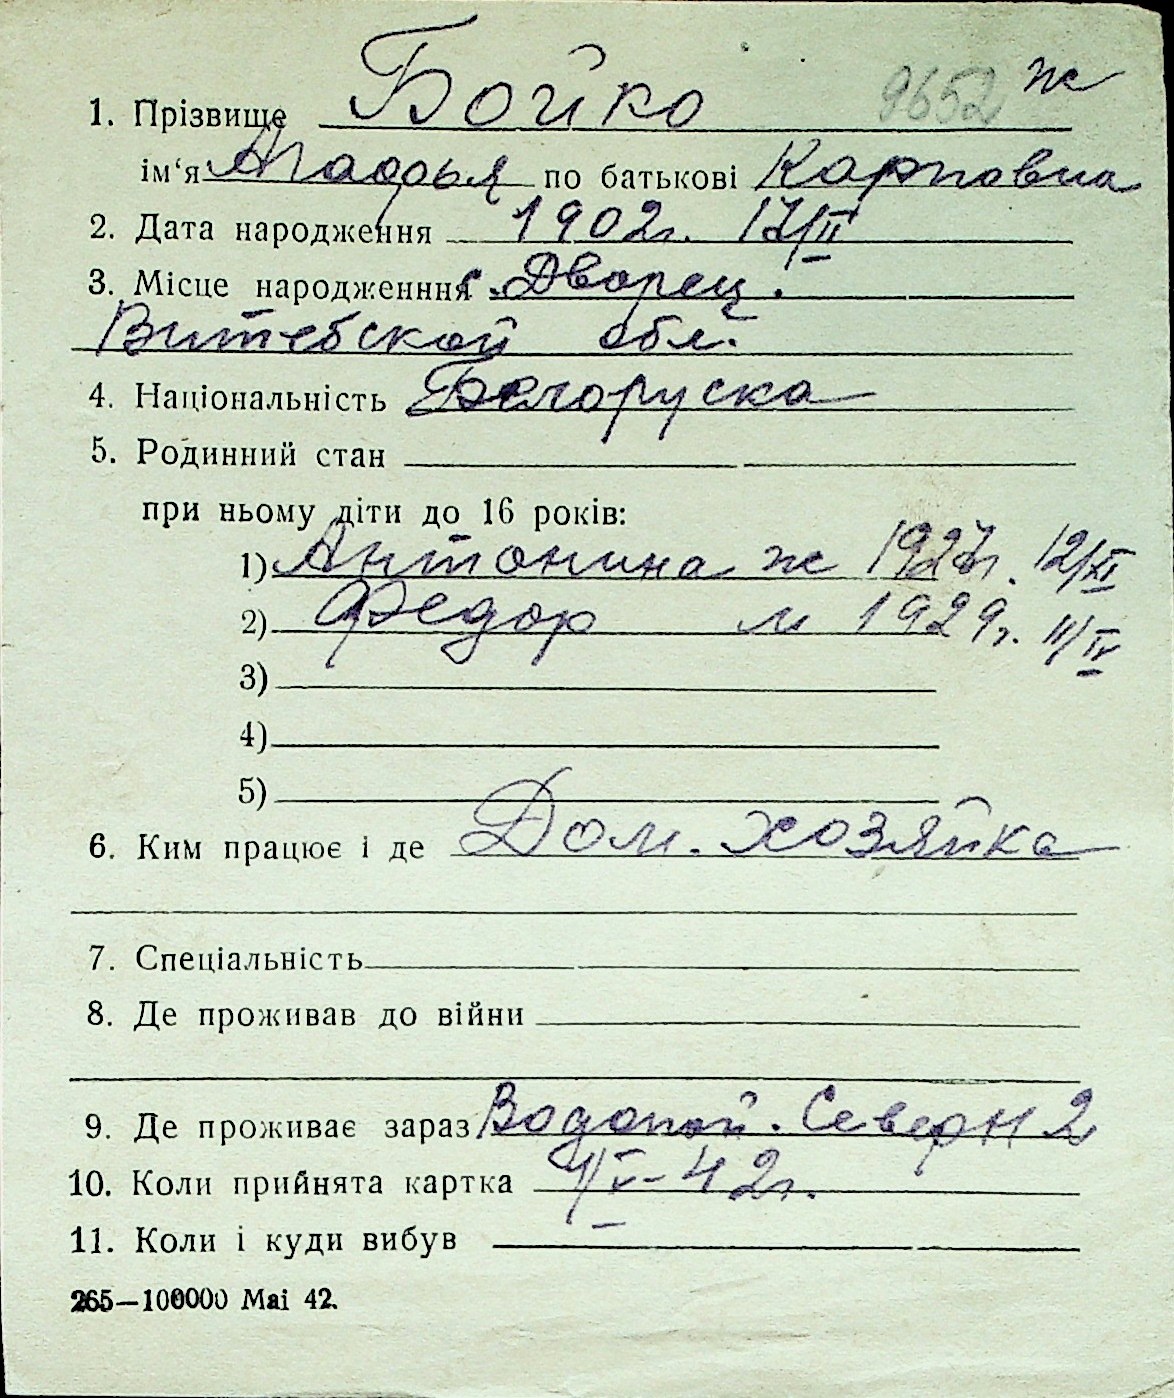 1. Прізвище Бойко 9652 ж
ім‘я Агафья по батькові Карповна
2. Дата народження 1902г. 17/II
3. Місце народженння с. Дворец.
Витебской обл.
4. Національність Белоруска
5. Родинний стан
при ньому діти до 16 років:
1) Антонина ж 1927г. 12/XI
2) Федор м 1929г. 11/IV
3)
4)
5)
6. Ким працює і де Дом. хозяйка
7. Спеціальність
8. Де проживав до війни
9. Де проживає зараз Водопой. Северн 2
10. Коли прийнята картка 9/V-42г.
11. Коли і куди вибув
265—100000 Mai 42.